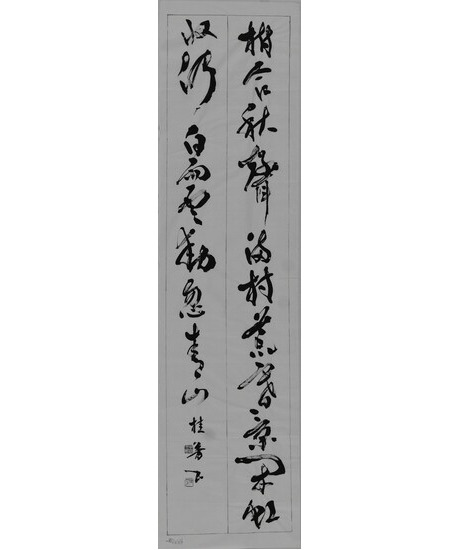 樹合秋聲滿村荒暮景閑虹
收仍白雨雲動忽青山
桂芳